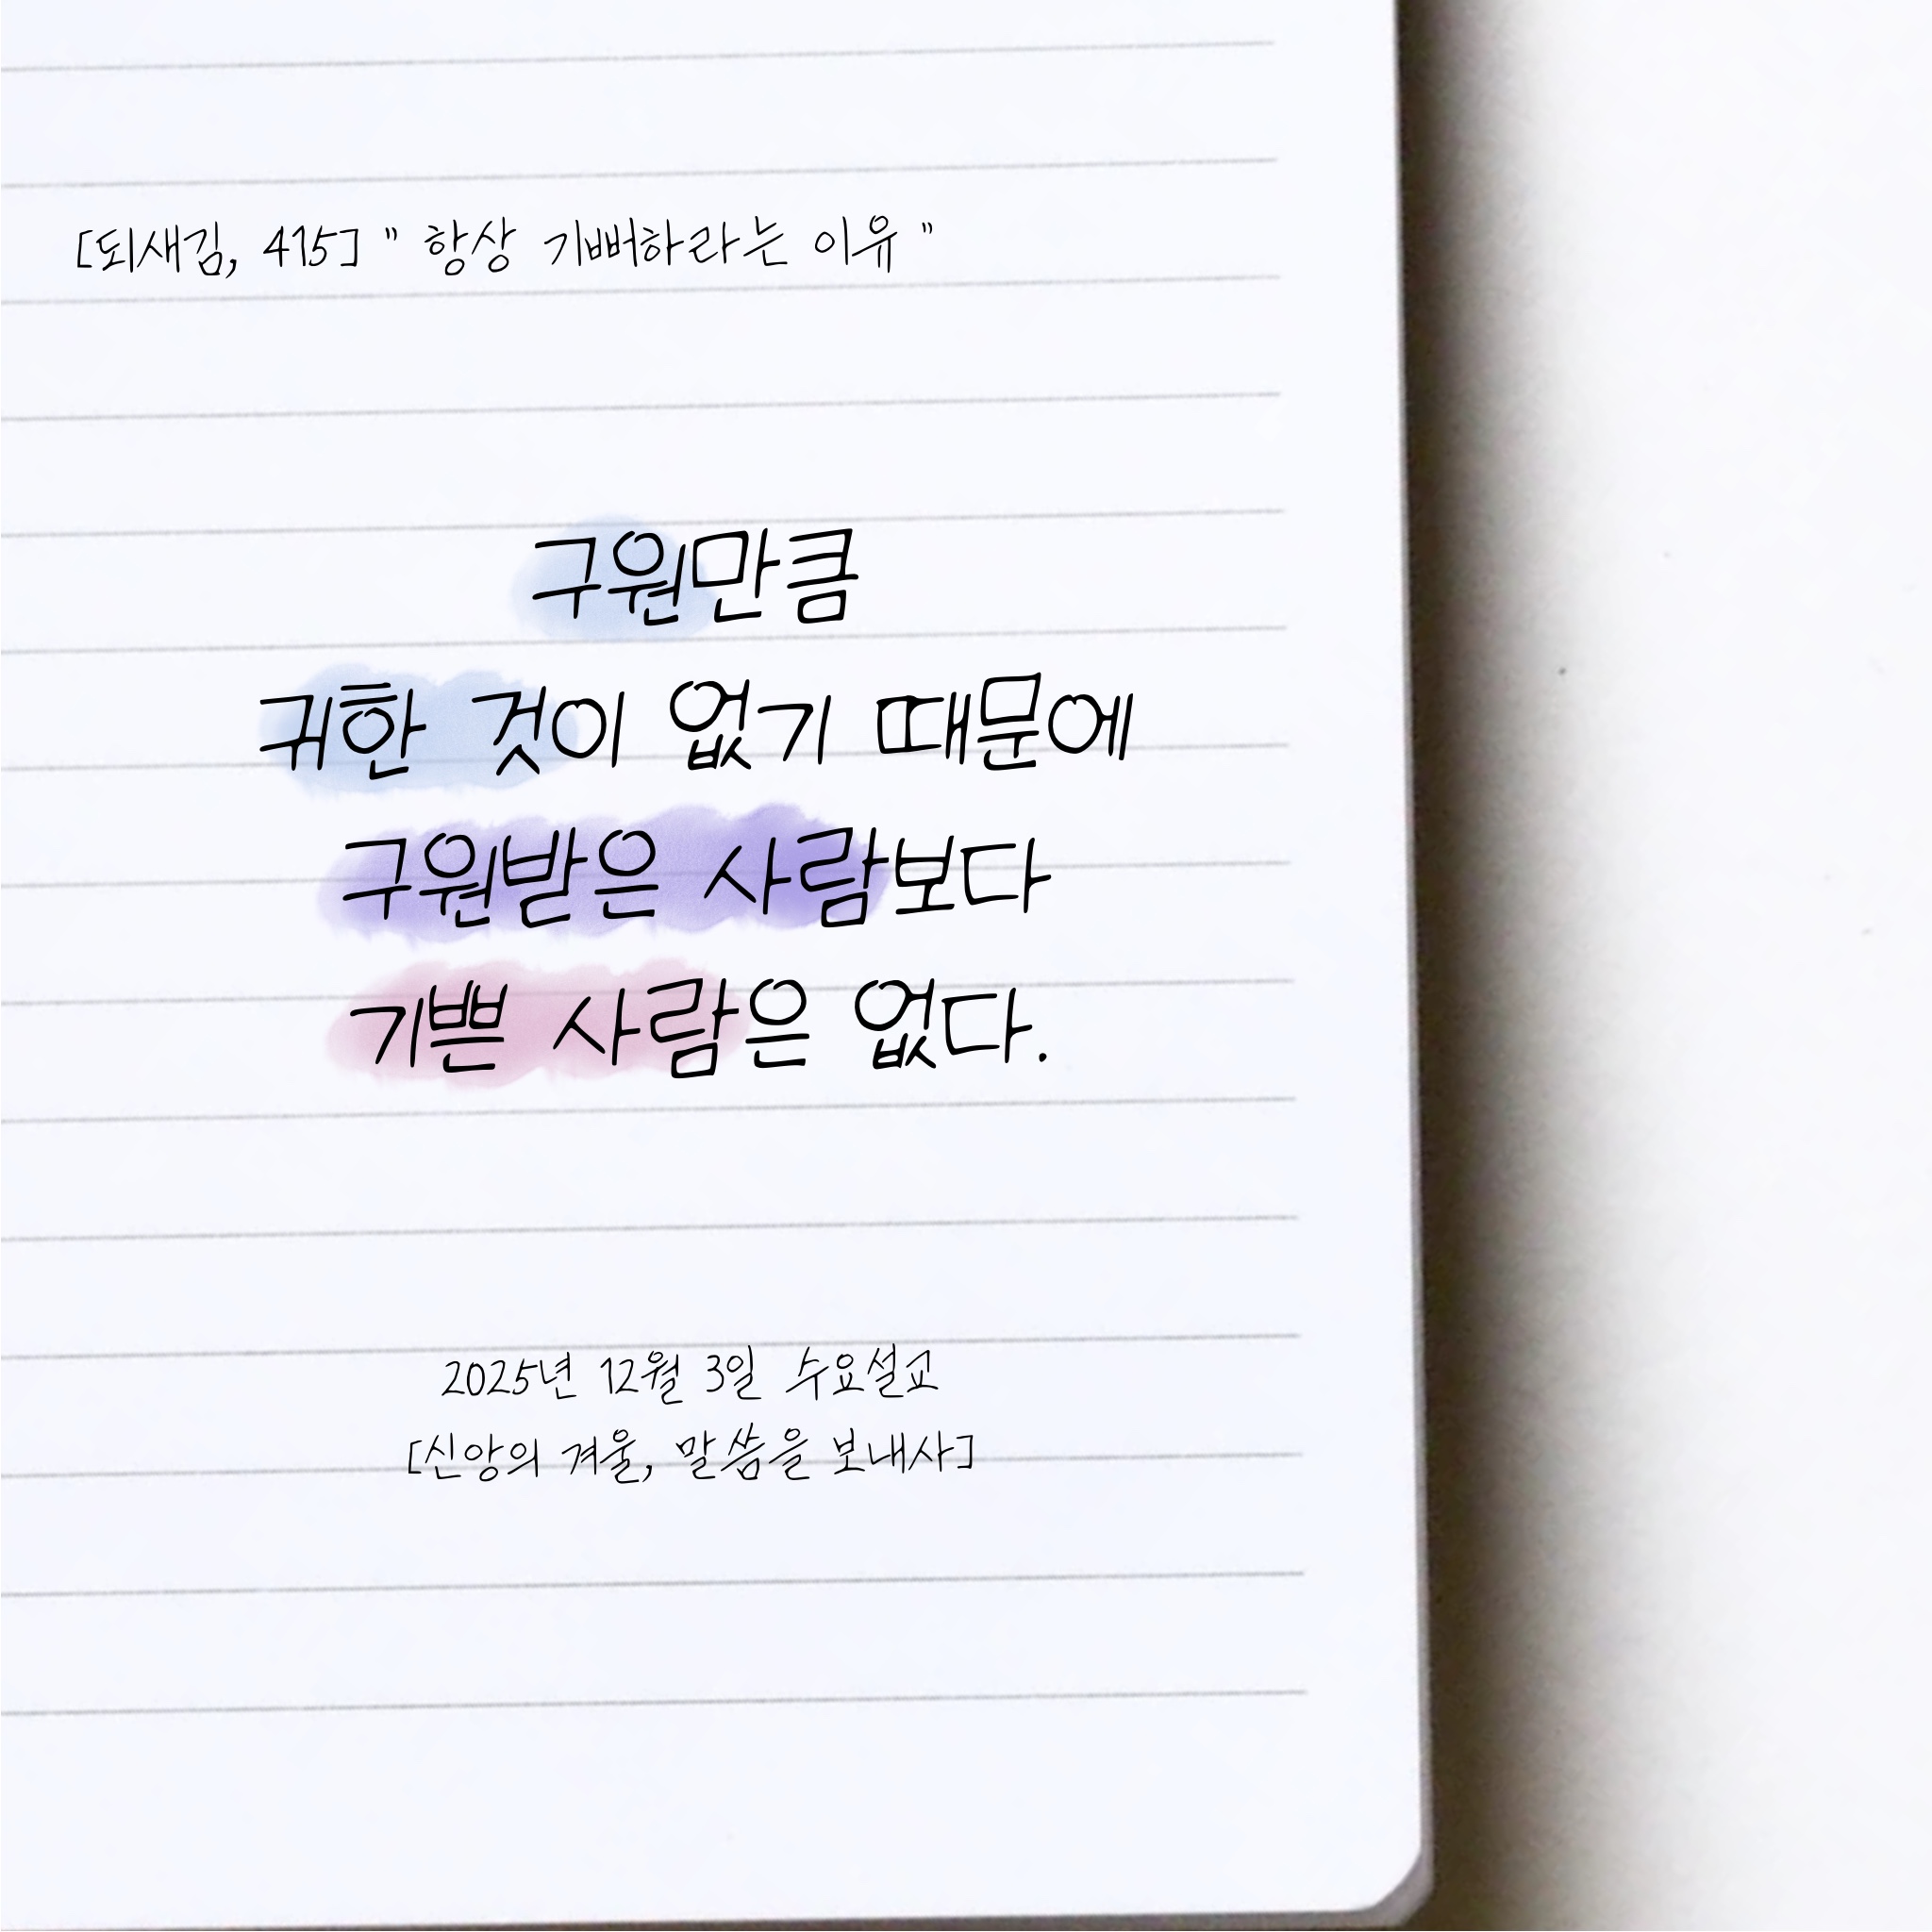 [되새김, 415] " 항상 기뻐하라는 이유 "
구원만큼
귀한 것이 없기 때문에
구원받은 사람보다
기쁜 사람은 없다.
2025년 12월 3일 수요설교
[신앙의 겨울, 말씀을 보내사]